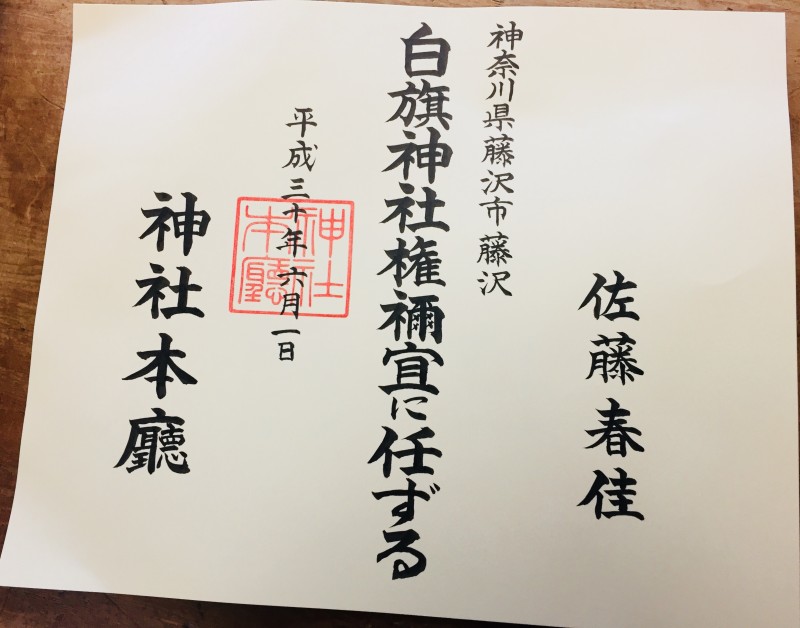 佐藤春佳
神奈川県藤沢市藤沢
白旗神社権禰宜に任ずる
平成三十年六月一日
神社本廳
神社本廳